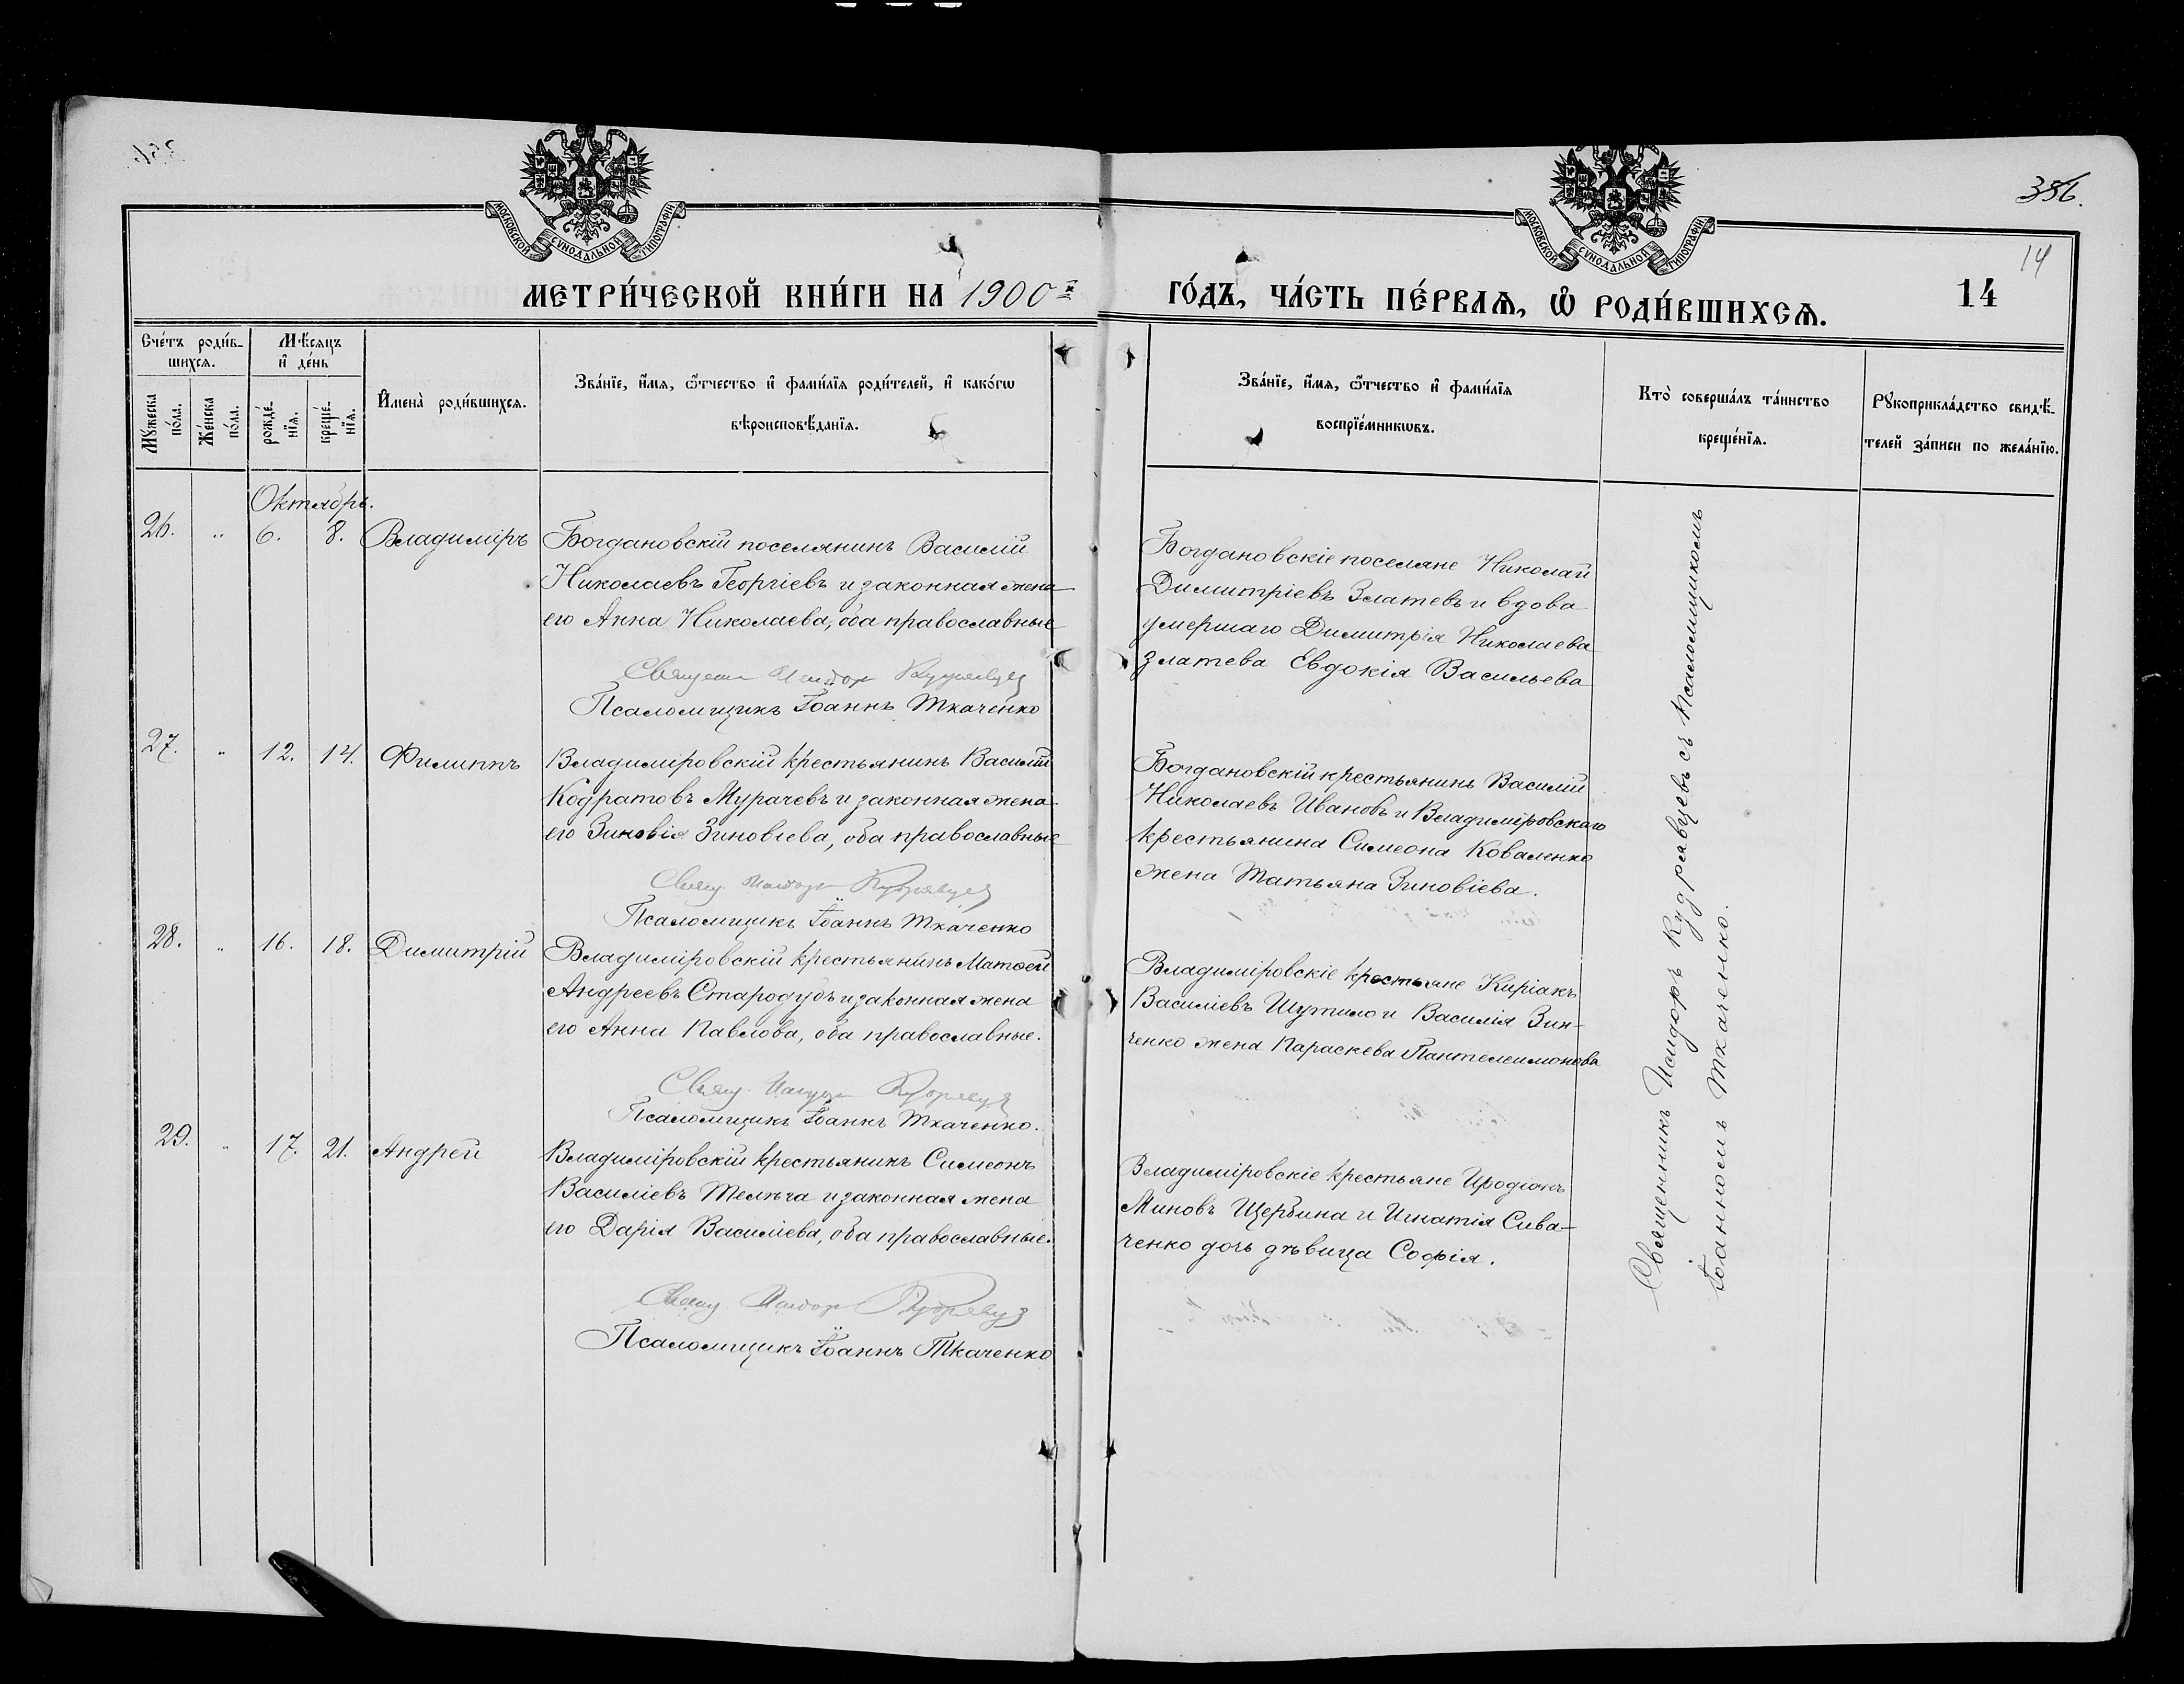 356.
14
МОСКОВСКОЙ СѴНОДАЛЬНОЙ ТИПОГРАФІИ
МОСКОВСКОЙ СѴНОДАЛЬНОЙ ТИПОГРАФІИ
МЕТРИ́ЧЕСКОЙ КНИ́ГИ НА 1900й
ГО́ДЪ, ЧА́СТЬ ПЕ́РВАѦ, Ѽ РОДИ́ВШИХСѦ.
14
Сче́тъ роди́в-
шихсѧ.
Мꙋ́жеска по́ла.
Же́нска по́ла.
Мѣ́сѧцъ
и҆ де́нь
рожде́-нїѧ.
креще́-нїѧ.
И҆мена̀ роди́вшихсѧ.
Зва́нїе, и҆́мѧ, ѻ҆́тчество и҆ фамн́лїѧ роди́телей, и҆ како́гѡ
вѣроисповѣ́данїѧ.
Зва́нїе, и҆́мѧ, ѻ҆́тчество и҆ фами́лїѧ
воспрїе́мникѡвъ.
Кто̀ соверша́лъ та́инство
креще́нїѧ.
Рꙋкоприкла́дство свидѣ́-
телей за́писи по жела́нїю.
Октябрь.
26. „ 6. 8. Владиміръ
Богдановскій поселянинъ Василій
Николаевъ Георгіевъ и законная жена
его Анна Николаева, оба православные
Священ Исидор Кудрявцев
Псаломщикъ Іоаннъ Ткаченко
Богдановскіе поселяне Николай
Димитріевъ Златевъ и вдова
умершаго Димитрія Николаева
Златева Евдокія Васильева
27. „ 12. 14. Филиппъ
Владиміровскій крестьянинъ Василій
Кодратовъ Мурачевъ и законная жена
его Зиновія Зиновіева, оба православные
Свящ. Исидор Кудрявцев
Псаломщикъ Іоаннъ Ткаченко
Богдановскій крестьянинъ Василій
Николаевъ Ивановъ и Владиміровскаго
крестьянина Симеона Коваленко
жена Татьяна Зиновіева.
28. „ 16. 18. Димитрій
Владиміровскій крестьянинъ Матѳей
Андреевъ Стародубъ и законная жена
его Анна Павлова, оба православные.
Свящ. Исидор Кудрявцев
Псаломщикъ Іоаннъ Ткаченко.
Владиміровскіе крестьяне Киріакъ
Василіевъ Шутило и Василія Зин-
ченко жена Параскева Пантелеимонова
29. „ 17. 21. Андрей
Владиміровскій крестьянинъ Симеонъ
Василіевъ Телѣга и законная жена
его Дарія Василіева, оба православные.
Свящ. Исидор Кудрявцев
Псаломщикъ Іоаннъ Ткаченко
Владиміровскіе крестьяне Иродіонъ
Миновъ Щербина и Игнатія Сива-
ченко дочь дѣвица Софія.
Священникъ Исидоръ Кудрявцевъ съ Псаломщикомъ
Іоанномъ Ткаченко.